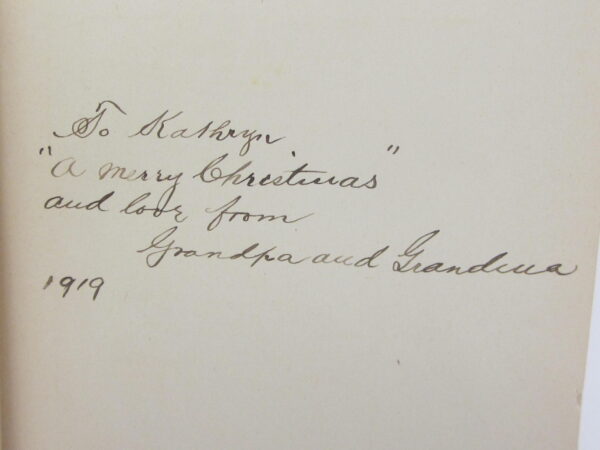 To Kathryn
"A merry Christmas"
and love from
Grandpa and Grandma
1919